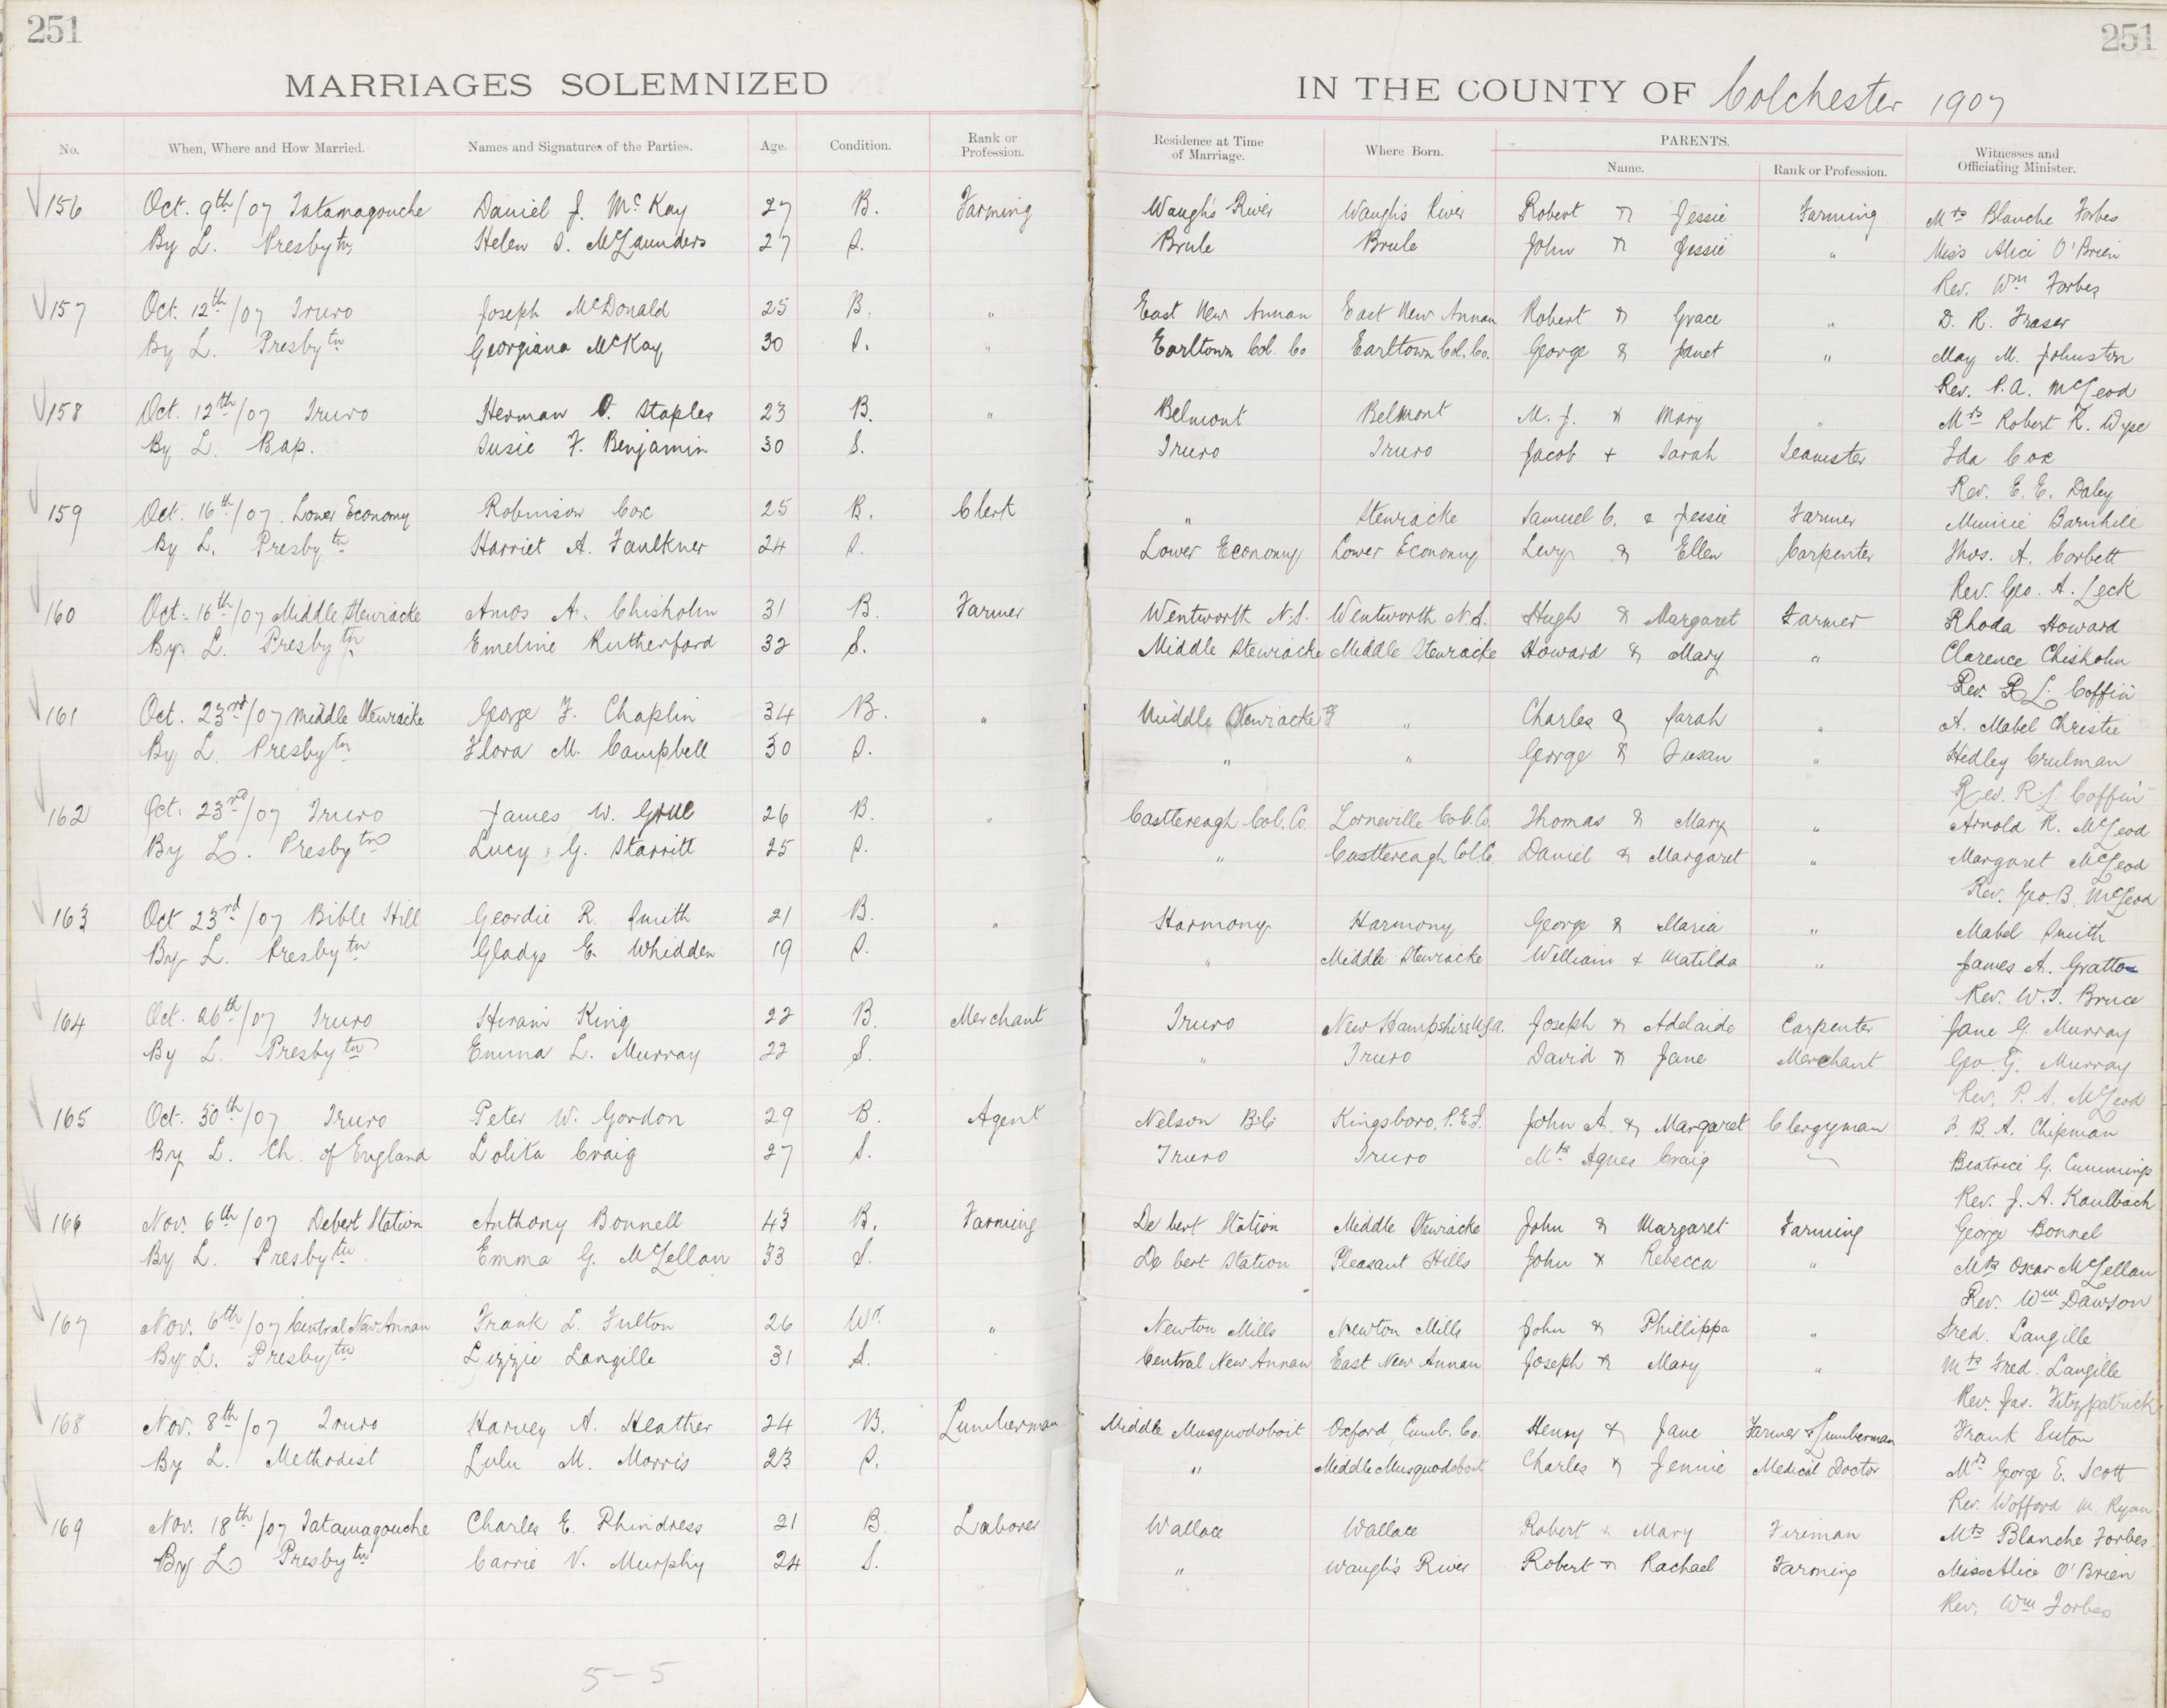 251 251
MARRIAGES SOLEMNIZED IN THE COUNTY OF Colchester 1907
No. When, Where and How Married. Names and Signatures of the Parties. Age. Condition. Rank or Profession. Residence at Time of Marriage. Where Born. PARENTS. Name. Rank or Profession. Witnesses and Officiating Minister.
156 Oct. 9th/07 Tatamagouche Daniel J. McKay 27 B. Farming Waugh's River Waugh's River Robert & Jessie Farming Mrs Blanche Forbes
By L. Presbytn Helen S. McLaunders 27 S. Brule Brule John & Jessie " Miss Alice O'Brien
Rev. Wm Forbes
157 Oct. 12th/07 Truro Joseph McDonald 25 B. " East New Annan East New Annan Robert & Grace " D. R. Fraser
By L. Presbytn Georgiana McKay 30 S. " Earltown Col. Co Earltown Col. Co. George & Janet " May M. Johnston
Rev. P. A. McLeod
158 Oct. 12th/07 Truro Herman O. Staples 23 B. " Belmont Belmont M. J. & Mary " Mrs Robert R. Wyse
By L. Bap. Susie F. Benjamin 30 S. Truro Truro Jacob + Sarah Teamster Ida Cox
Rev. E. E. Daley
159 Oct. 16th/07. Lower Economy Robinson Cox 25 B. Clerk " Stewiacke Samuel C. & Jessie Farmer Minnie Barnhill
By L. Presbytn Harriet A. Faulkner 24 S. Lower Economy Lower Economy Levy & Ellen Carpenter Thos. A. Corbett
Rev. Geo. A. Leck
160 Oct. 16th/07 Middle Stewiacke Amos A. Chisholm 31 B. Farmer Wentworth N.S. Wentworth N.S. Hugh & Margaret Farmer Rhoda Howard
By L. Presbytn Emeline Rutherford 32 S. Middle Stewiacke Middle Stewiacke Howard & Mary " Clarence Chisholm
Rev. R L. Coffin
161 Oct. 23rd/07 Middle Stewiacke George F. Chaplin 34 B. " Middle Stewiacke " Charles & Sarah " A. Mabel Christie
By L. Presbytn Flora M. Campbell 30 S. " " George & Susan " Hedley Crulman
Rev. R L Coffin
162 Oct. 23rd/07 Truro James W. Grue 26 B. " Castlereagh Col. Co. Lorneville Col. Co. Thomas & Mary " Arnold R. McLeod
By L. Presbytn Lucy G. Starritt 25 S. " Castlereagh Col Co Daniel & Margaret " Margaret McLeod
Rev. Geo. B. McLeod
163 Oct 23rd/07 Bible Hill Geordie R. Smith 21 B. " Harmony Harmony George & Maria " Mabel Smith
By L. Presbytn Gladys E. Whidden 19 S. " Middle Stewiacke William + Matilda " James A. Gratto
Rev. W. T. Bruce
164 Oct. 26th/07 Truro Hiram King 22 B. Merchant Truro New Hampshire U.S.A. Joseph & Adelaide Carpenter Jane G. Murray
By L. Presbytn Emma L. Murray 22 S. " Truro David & Jane Merchant Geo. G. Murray
Rev. P. A. McLeod
165 Oct. 30th/07 Truro Peter W. Gordon 29 B. Agent Nelson B.C. Kingsboro, P.E.I. John A. & Margaret Clergyman F. B. A. Chipman
By L. Ch. of England Lolita Craig 27 S. Truro Truro Mrs Agnes Craig — Beatrice G. Cummings
Rev. J. A. Kaulbach
166 Nov. 6th/07 Debert Station Anthony Bonnell 43 B. Farming De bert Station Middle Stewiacke John & Margaret Farming George Bonnel
By L. Presbytn Emma G. McLellan 33 S. De bert Station Pleasant Hills John & Rebecca " Mrs Oscar McLellan
Rev. Wm Dawson
167 Nov. 6th/07 Central New Annan Frank L. Fulton 26 Wr. " Newton Mills Newton Mills John & Phillippa " Fred. Langille
By L. Presbytn Lizzie Langille 31 S. Central New Annan East New Annan Joseph & Mary " Mrs Fred. Langille
Rev. Jas. Fitzpatrick
168 Nov. 8th/07 Truro Harvey A. Heather 24 B. Lumberman Middle Musquodoboit Oxford, Cumb. Co. Henry & Jane Farmer & Lumberman Frank Suton
By L. Methodist Lulu M. Morris 23 S. " Middle Musquodoboit Charles & Jennie Medical Doctor Mrs George E. Scott
Rev. Wofford M. Ryan
169 Nov. 18th/07 Tatamagouche Charles E. Phindress 21 B. Laborer Wallace Wallace Robert & Mary Fireman Mrs Blanche Forbes
By L. Presbytn Carrie V. Murphy 24 S. " Waugh's River Robert & Rachael Farming Miss Alice O'Brien
Rev. Wm Forbes
5-5